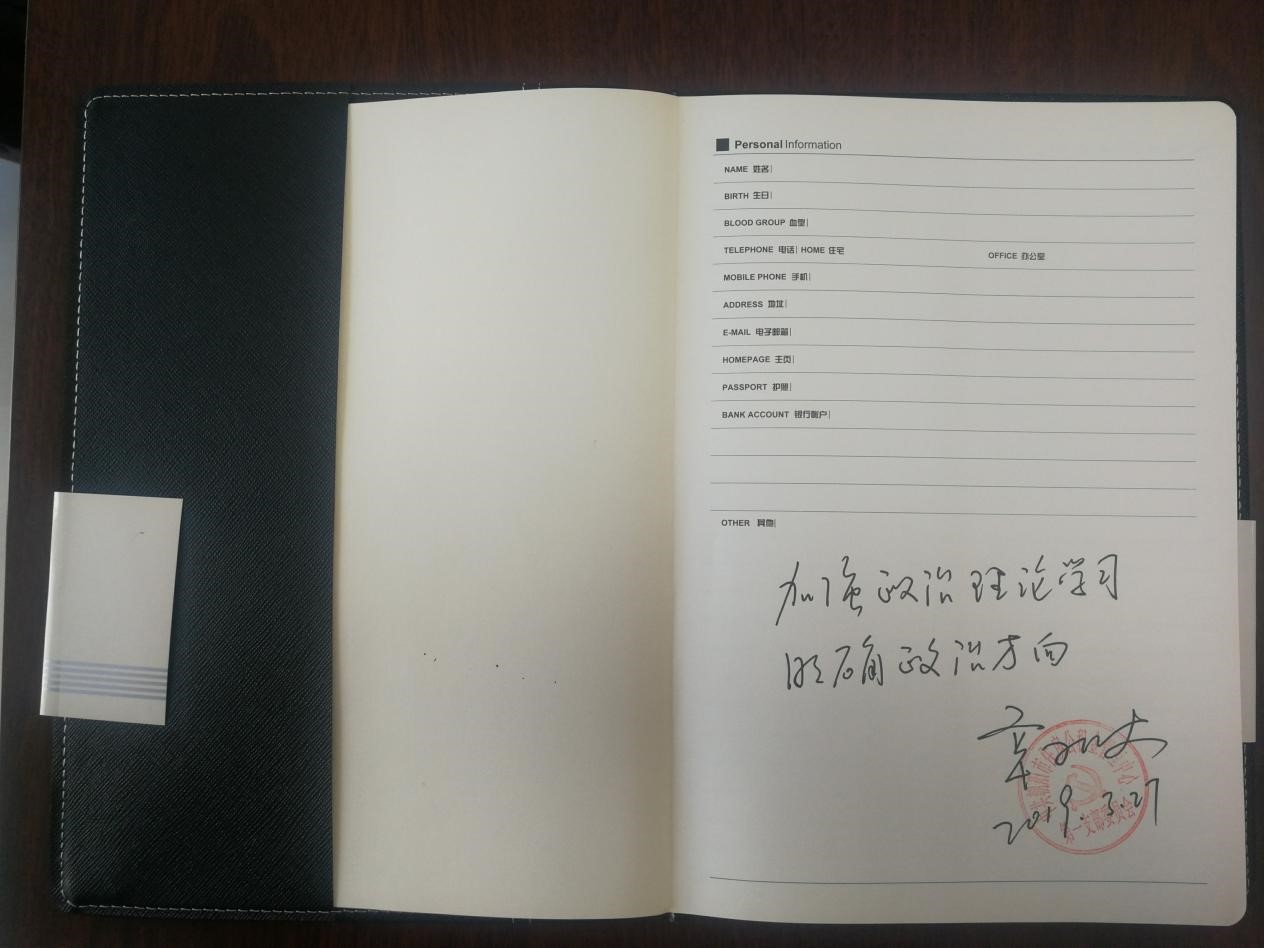 Personal Information
NAME 姓名|
BIRTH 生日|
BLOOD GROUP 血型|
TELEPHONE 电话| HOME 住宅 OFFICE 办公室
MOBILE PHONE 手机|
ADDRESS 地址|
E-MAIL 电子邮箱|
HOMEPAGE 主页|
PASSPORT 护照|
BANK ACCOUNT 银行帐户|
OTHER 其他|
加强政治理论学习
明确政治方向
2019.3.27
市住房公积金管理中心
第一支部委员会